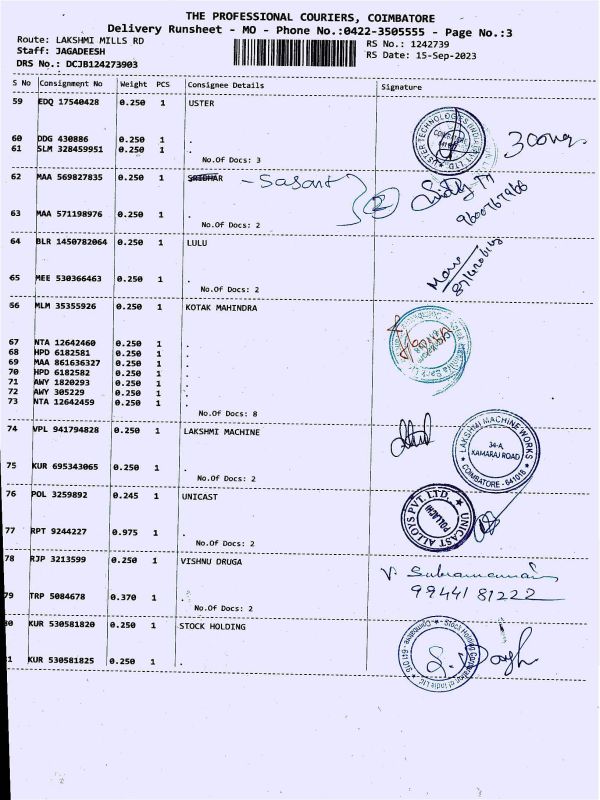 THE PROFESSIONAL COURIERS, COIMBATORE
Delivery Runsheet - MO - Phone No.:0422-3505555 - Page No.:3
Route: LAKSHMI MILLS RD
RS No.: 1242739
Staff: JAGADEESH
RS Date: 15-Sep-2023
DRS No.: DCJB124273903
S No Consignment No Weight PCS Consignee Details Signature
59 EDQ 17540428 0.250 1 USTER
60 DDG 430886 0.250 1 .
61 SLM 328459951 0.250 1 .
No.Of Docs: 3
62 MAA 569827835 0.250 1 SRIDHAR
2
63 MAA 571198976 0.250 1 .
No.Of Docs: 2
64 BLR 1450782064 0.250 1 LULU
65 MEE 530366463 0.250 1 .
No.Of Docs: 2
66 MLM 35355926 0.250 1 KOTAK MAHINDRA
67 NTA 12642460 0.250 1 .
68 HPD 6182581 0.250 1 .
69 MAA 861636327 0.250 1 .
70 HPD 6182582 0.250 1 .
71 AWY 1820293 0.250 1 .
72 AWY 305229 0.250 1 .
73 NTA 12642459 0.250 1 .
No.Of Docs: 8
74 VPL 941794828 0.250 1 LAKSHMI MACHINE
LAKSHMI MACHINE WORKS
34-A,
KAMARAJ ROAD
COIMBATORE - 641018
75 KUR 695343065 0.250 1 .
No.Of Docs: 2
76 POL 3259892 0.245 1 UNICAST
UNICAST ALLOYS PVT. LTD.
POLLACHI
77 RPT 9244227 0.975 1 .
No.Of Docs: 2
78 RJP 3213599 0.250 1 VISHNU DRUGA
V. Subramaniam
99441 81222
79 TRP 5084678 0.370 1 .
No.Of Docs: 2
80 KUR 530581820 0.250 1 STOCK HOLDING
81 KUR 530581825 0.250 1 .
JAGADEESH